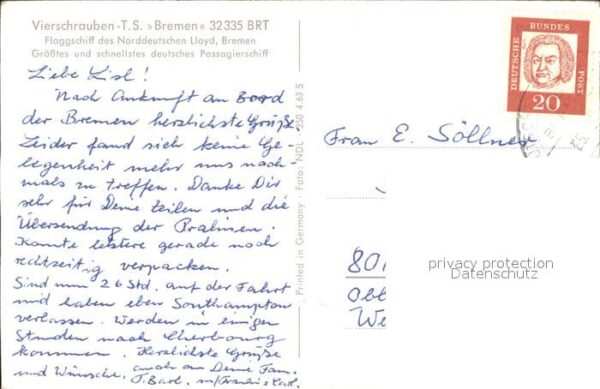 Vierschrauben-T.S. »Bremen« 32335 BRT
Flaggschiff des Norddeutschen Lloyd, Bremen
Größtes und schnellstes deutsches Passagierschiff
Liebe Lisl!
Nach Ankunft an Bord
der Bremen herzlichste Grüße.
Leider fand sich keine Ge-
legenheit mehr uns noch-
mals zu treffen. Danke Dir
sehr für Deine Zeilen und die
Übersendung der Pralinen.
Konnte letztere gerade noch
rechtzeitig verpacken.
Sind nun 26 Std. auf der Fahrt
und haben eben Southampton
verlassen. Werden in einigen
Stunden nach Cherbourg
kommen. Herzlichste Grüße
und Wünsche, auch an Deine Fam.
Printed in Germany · Foto: NDL 550 4.63 S
DEUTSCHE BUNDESPOST
20
Frau E. Söllner
801
Obe
We
privacy protection
Datenschutz